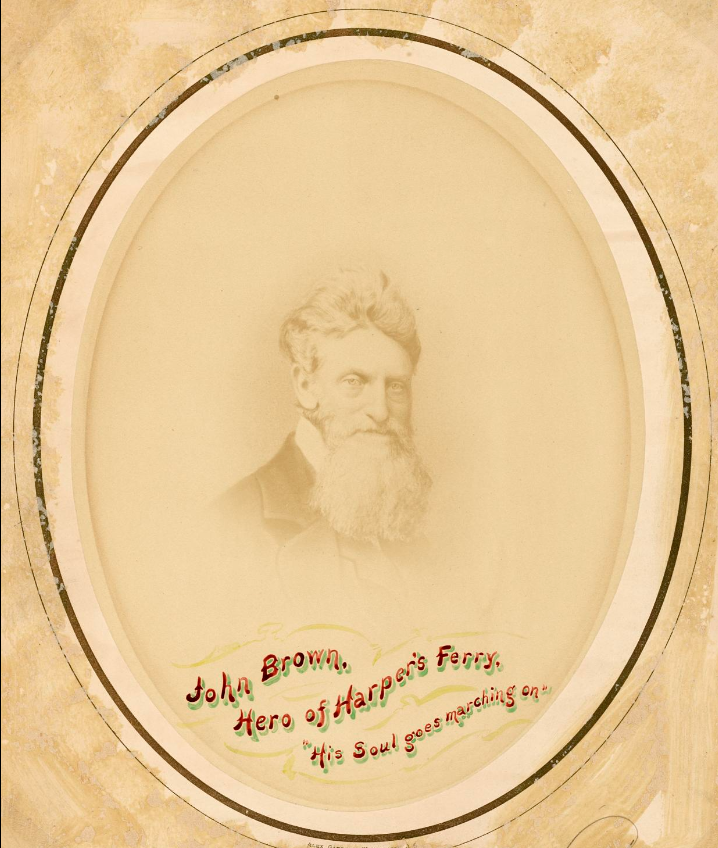 John Brown,
Hero of Harper's Ferry,
"His Soul goes marching on"